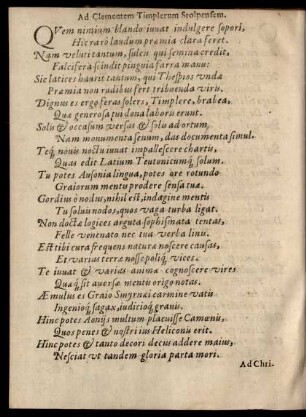 Ad Clementem Timplerum Stolpensem.
QVem nimium blando iuuat indulgere sopori,
Hic raro laudum præmia clara feret.
Nam veluti tantum, sulcu qui semina credit,
Falcifera scindit pinguia farra manu:
Sic latices hausit tantum, qui Thespios vnda
Præmia non rudibus fert tribuenda viris.
Dignus es ergo feras solers, Timplere, brabea,
Qua generosa tui dona laboris erunt.
Solis & occasum versus & solis ad ortum,
Nam monumenta senum, das documenta simul.
Teq́, nouis noctu iuuat impallescere chartis,
Quas edit Latium Teutonicumq́ solum.
Tu potes Ausonia lingua, potes ore rotundo
Graiorum mentis prodere sensa tuæ.
Gordius ô nodus, nihil est, indagine mentis
Tu soluis nodos, quos vaga turba ligat.
Non doctæ logices arguta sophismata tentas,
Felle venenato nec tua verba linis.
Est tibi cura frequens naturæ noscere causas,
Et varias terræ nosse poliq́ vices.
Te iuuat & varias anima cognoscere vires
Quaq́ sit auersæ mentis origo notas.
Æmulus es Graio Smyrnæi carmine vatis
Ingenioq́ sagax, iudicioq́ grauis.
Hinc potes Aonijs multum placuisse Camœnis,
Quos penes & nostri ius Heliconis erit.
Hinc potes & tanto decori decus addere maius,
Nesciat vt tandem gloria parta mori.
Ad Chri-